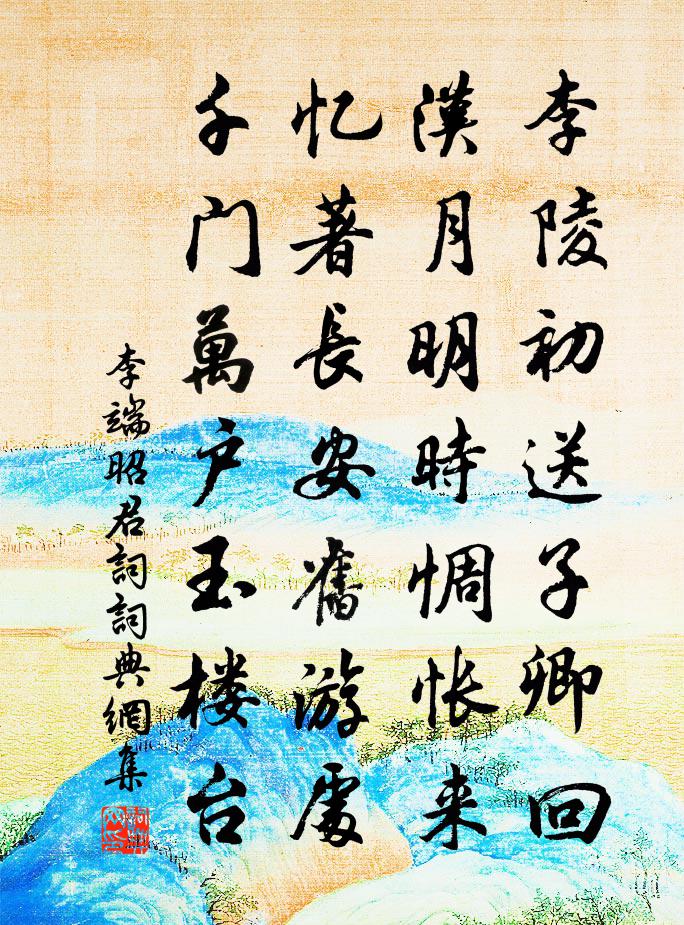 李陵初送子卿回
漢月明時惆怅来
忆著長安舊游處
千门萬户玉楼台
李端昭君詞詞典網集